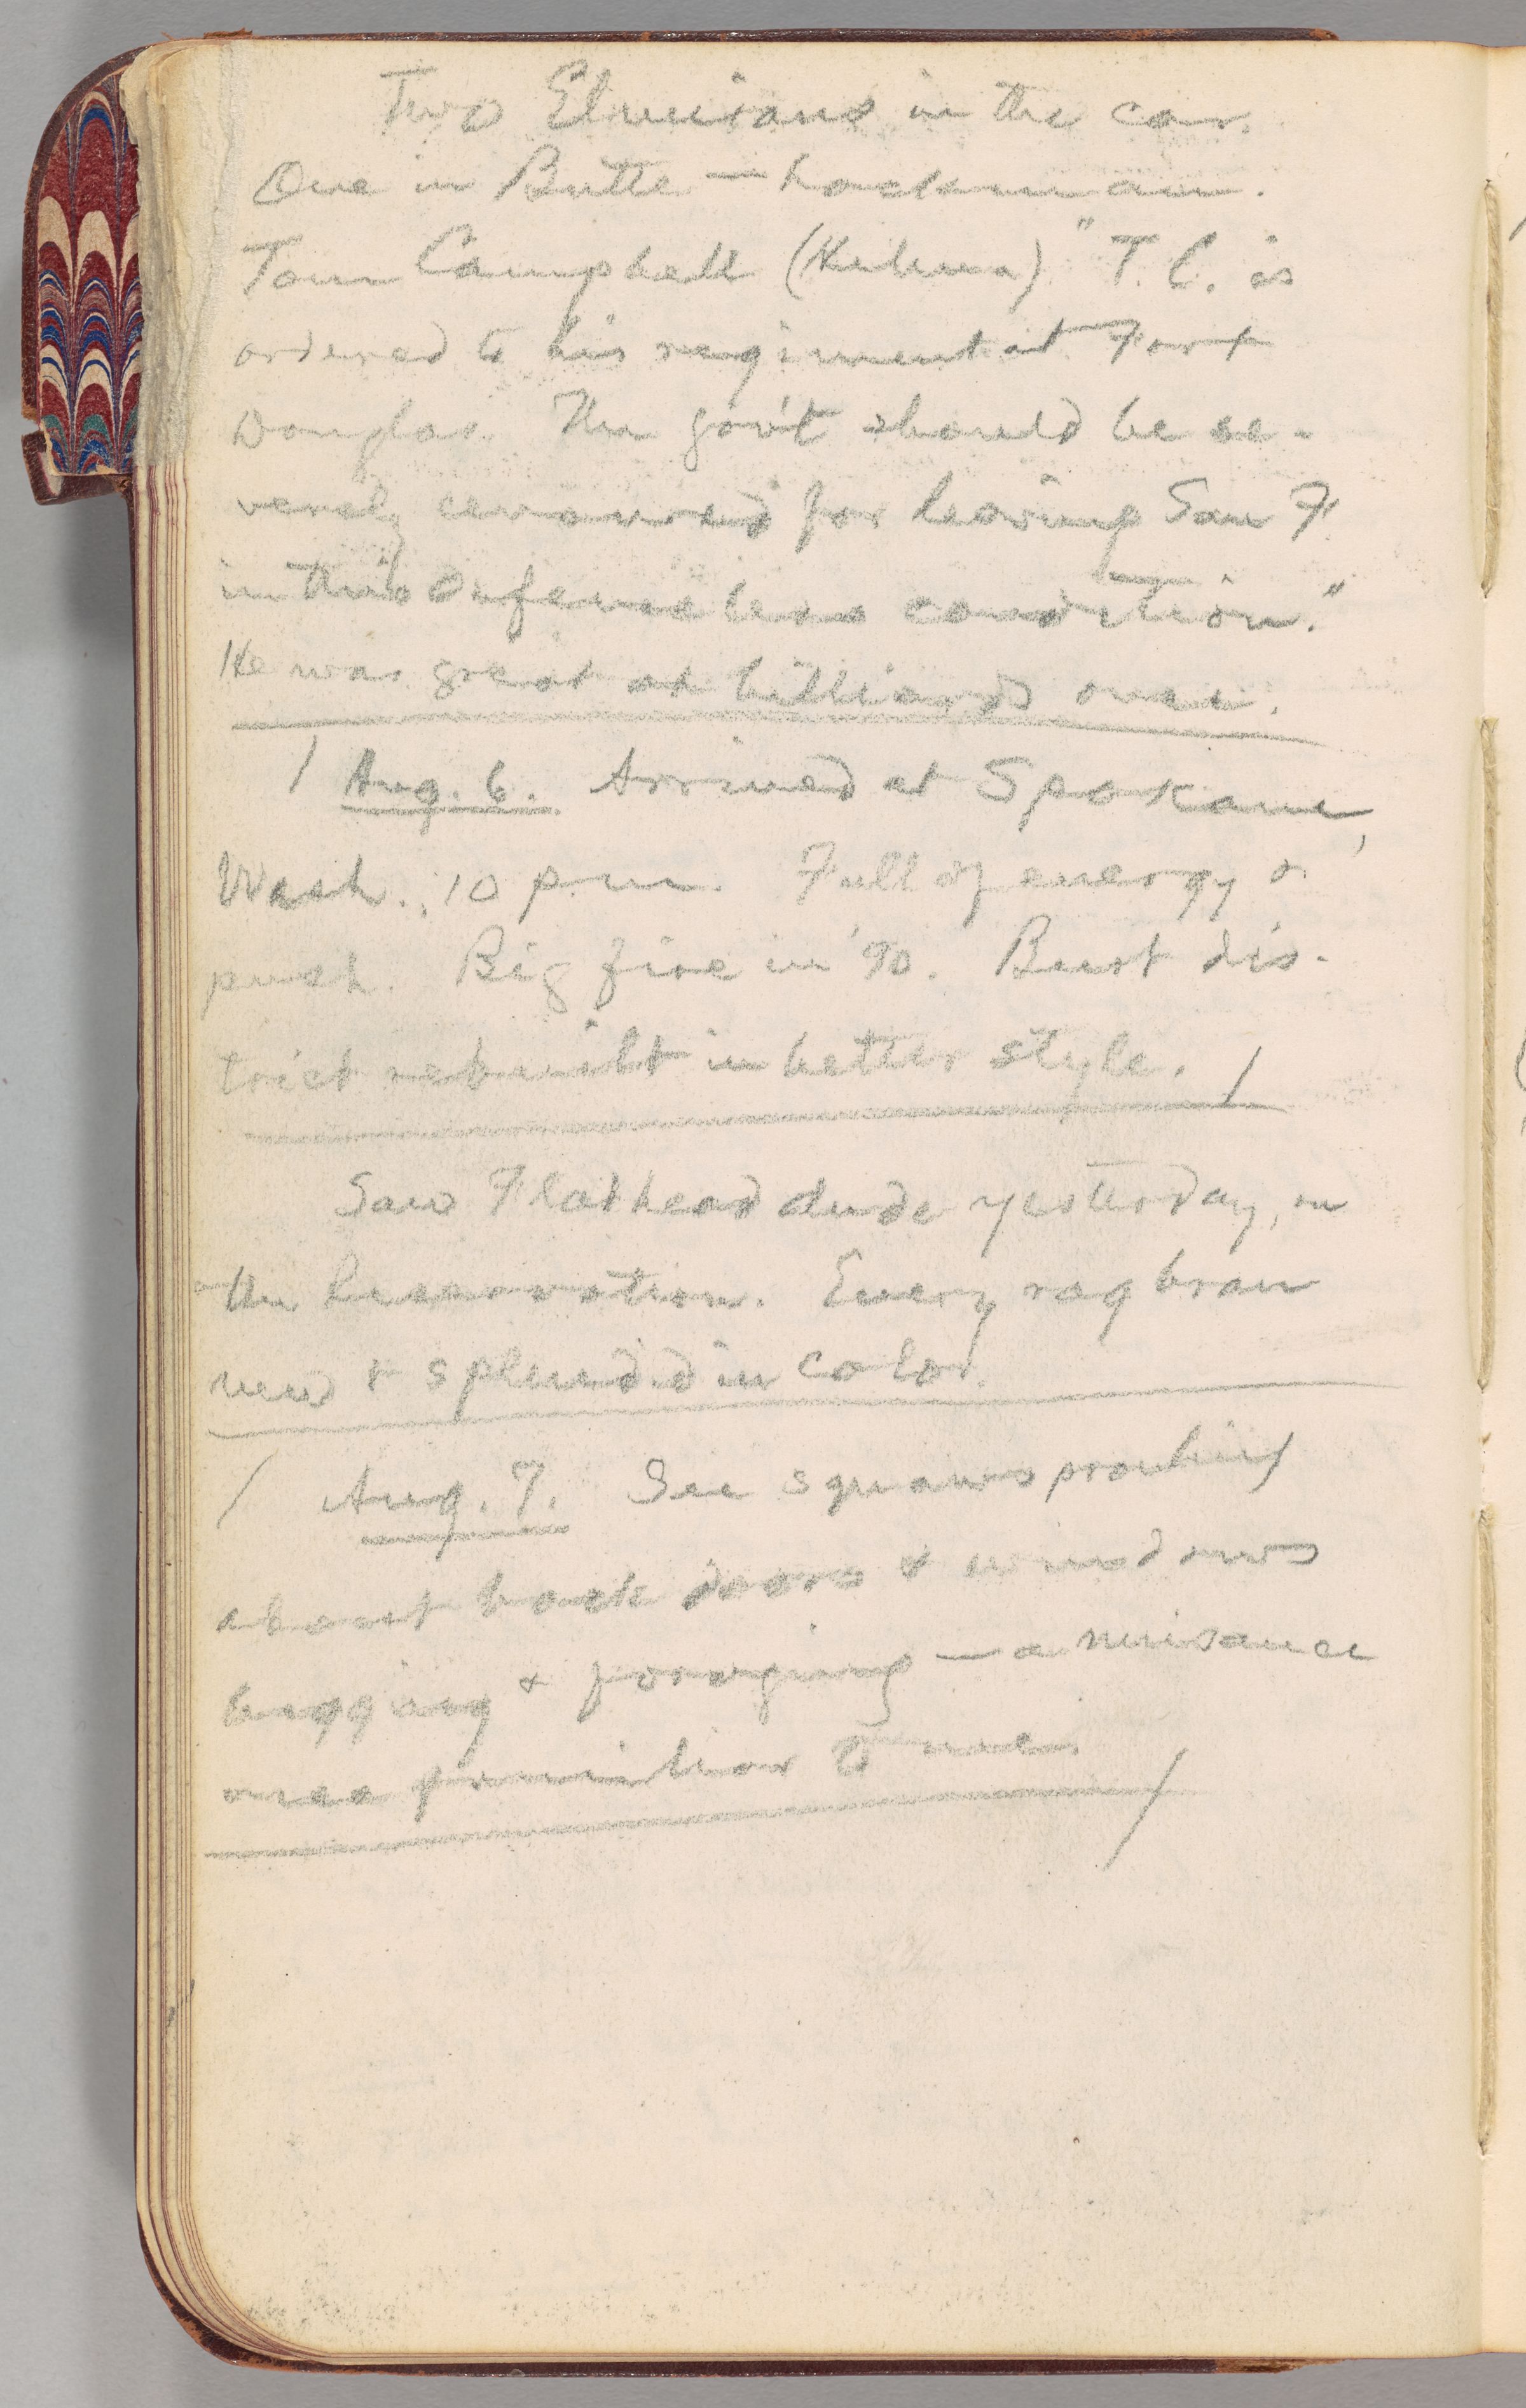 Two Elmirans in the car.
One in Butte — hackman.
Tom Campbell "T. C. is
ordered to his regiment at Fort
Douglas. The gov't should be se-
verely censured for leaving San F.
in this defenceless condition."
He was great at billiards once.
/ Aug. 6. Arrived at Spokane,
Wash., 10 p.m. Full of energy &
push. Big fire in '90. Burt dis-
trict rebuilt in better style. /
Saw Flathead dude yesterday, on
the Reservation. Every rag bran
new & splendid in color.
/ Aug. 7. See squaws prowling
about back doors & windows
begging & foraging — a nuisance
once familiar to me. /